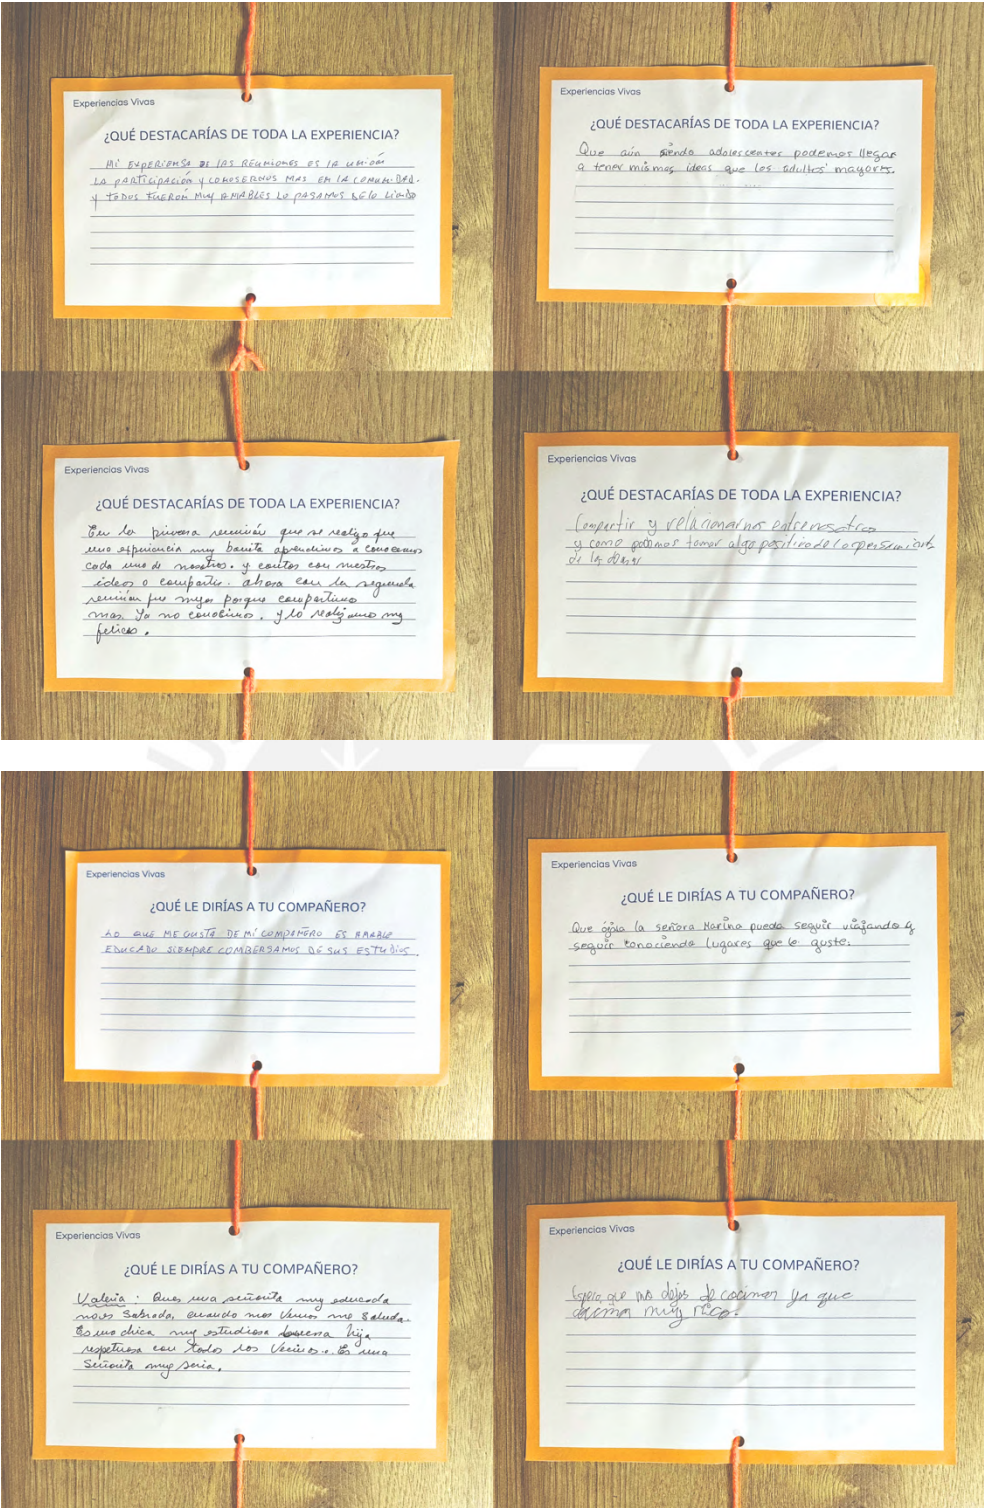 Experiencias Vivas
¿QUÉ DESTACARÍAS DE TODA LA EXPERIENCIA?
Mi EXPERIENSA LAS REUNIONES ES LA UNIÓN
LA PARTICIPACIÓN Y CONOSERNOS MAS EN LA COMUNIDAD.
Y TODOS FUERÓN MUY AMABLES LO PASAMOS BELO LINDO
Experiencias Vivas
¿QUÉ DESTACARÍAS DE TODA LA EXPERIENCIA?
Que aún siendo adolescentes podemos llegar
a tener mismas ideas que los adultos mayores.
Experiencias Vivas
¿QUÉ DESTACARÍAS DE TODA LA EXPERIENCIA?
En la reunión que se realizo fue
una muy bonita aprendimos a conocernos
cada uno de nosotros. y contar con nuestras
ideas o compartir. ahora con la segunda
reunión fue mejor porque compartimos
mas. Ya no conosimos. y lo muy
felices.
Experiencias Vivas
¿QUÉ DESTACARÍAS DE TODA LA EXPERIENCIA?
Compartir y relacionarnos entre nosotros
y como podemos tomar algo positivo de los
de los
Experiencias Vivas
¿QUÉ LE DIRÍAS A TU COMPAÑERO?
Lo QUE ME GUSTA DE Mi COMPAÑERO ES AMABLE
EDUCADO SIEMPRE COMBERSAMOS DE SUS ESTUDIOS.
Experiencias Vivas
¿QUÉ LE DIRÍAS A TU COMPAÑERO?
Que ójala la señora Marina pueda seguir viajando y
seguir conociendo lugares que le guste.
Experiencias Vivas
¿QUÉ LE DIRÍAS A TU COMPAÑERO?
Valeria: una señorita muy educada
cuando nos vemos me saluda.
Es una chica muy estudiosa buena hija
respetuosa con todos los Vecinos. Es una
Señorita muy seria.
Experiencias Vivas
¿QUÉ LE DIRÍAS A TU COMPAÑERO?
Espero que no dejes de cocinar ya que
cocina muy rico.